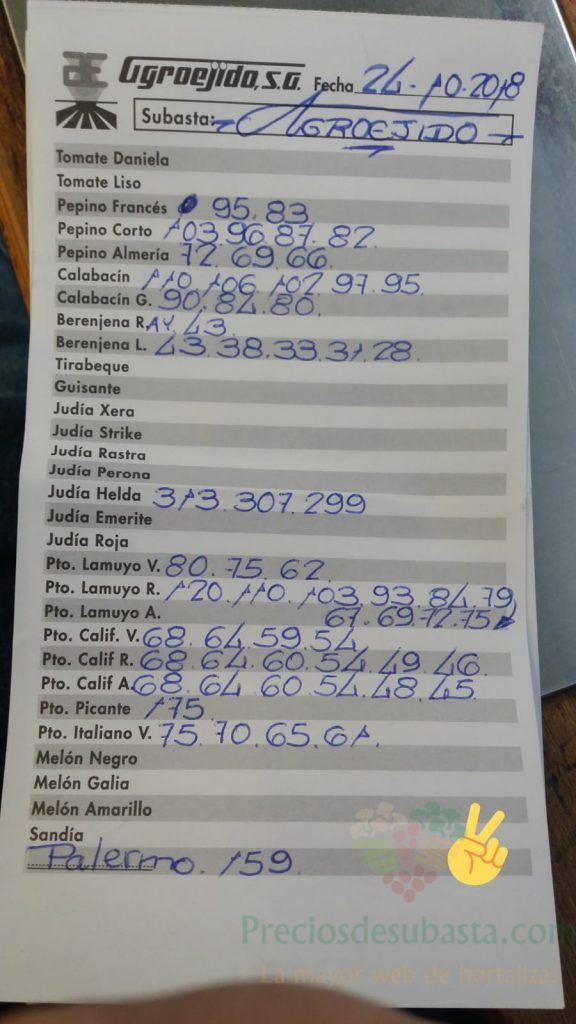 Agroejido, S.A. Fecha 24-10-2018
Subasta: AGROEJIDO
Tomate Daniela
Tomate Liso
Pepino Francés 95. 83
Pepino Corto 103. 96. 87. 82.
Pepino Almería 72. 69. 66.
Calabacín 110. 106. 102. 97. 95.
Calabacín G. 90. 84. 80.
Berenjena RAY. 43.
Berenjena L. 43. 38. 33. 31. 28.
Tirabeque
Guisante
Judía Xera
Judía Strike
Judía Rastra
Judía Perona
Judía Helda 313. 307. 299
Judía Emerite
Judía Roja
Pto. Lamuyo V. 80. 75. 62.
Pto. Lamuyo R. 120. 110. 103. 93. 84. 79
Pto. Lamuyo A. 67. 69. 72. 75
Pto. Calif. V. 68. 64. 59. 54
Pto. Calif R. 68. 64. 60. 54. 49. 46.
Pto. Calif A. 68. 64. 60. 54. 48. 45.
Pto. Picante 175
Pto. Italiano V. 75. 70. 65. 61.
Melón Negro
Melón Galia
Melón Amarillo
Sandía
Palermo. 159.
Preciosdesubasta.com
La mayor web de hortalizas